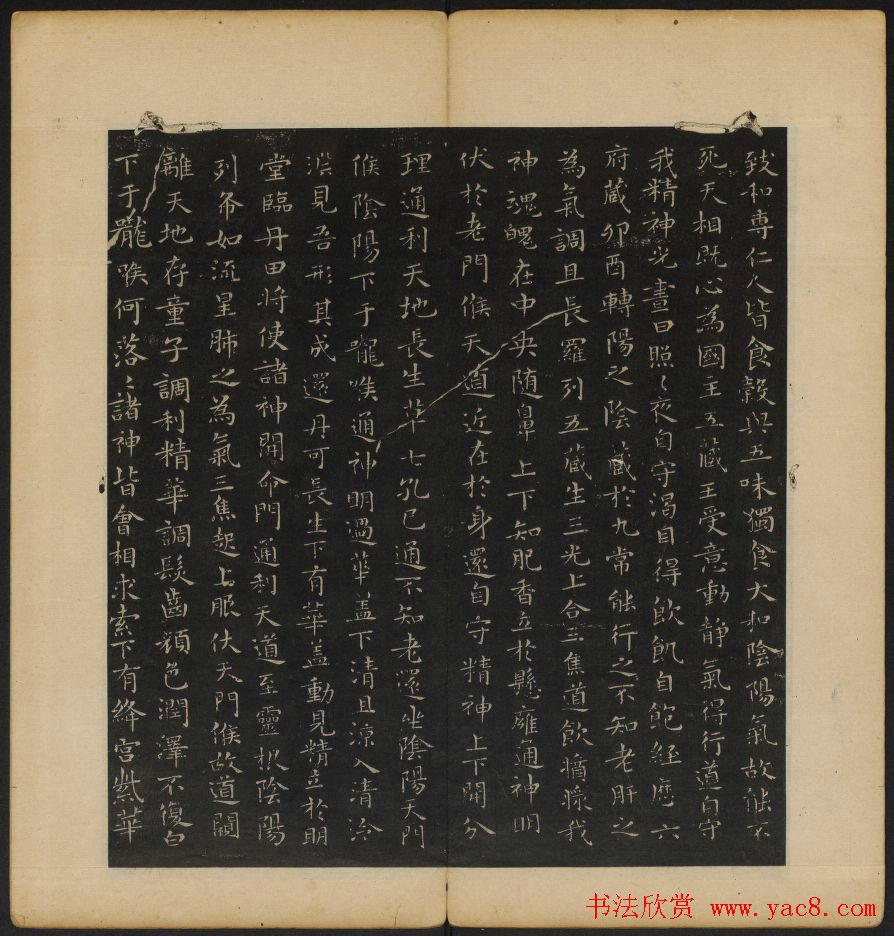 致和專仁人皆食穀與五味獨食大和陰陽氣故能不
死天相既心為國主五藏王受意動靜氣得行道自守
我精神光晝日照〻夜自守渴自得飲飢自飽經歷六
府藏卯酉轉陽之陰藏於九常能行之不知老肝之
為氣調且長羅列五藏生三光上合三焦道飲醬漿我
神魂魄在中央随鼻上下知肥香立於懸雍通神明
伏於老門候天道近在於身還自守精神上下開分
理通利天地長生草七孔已通不知老還坐陰陽天門
候陰陽下于嚨喉通神明過華盖下清且涼入清泠
淵見吾形其成還丹可長生下有華盖動見精立於明
堂臨丹田將使諸神開命門通利天道至靈根陰陽
列布如流星肺之為氣三焦起上服伏天門候故道闚
離天地存童子調利精華調髮齒顏色潤澤不復白
下于嚨喉何落〻諸神皆會相求索下有絳宮紫華
书法欣赏 www.yac8.com